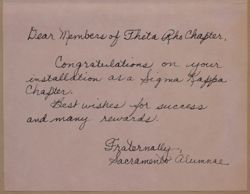 Dear Members of Theta Rho Chapter,
Congratulations on your
installation as a Sigma Kappa
Chapter.
Best wishes for success
and many rewards.
Fraternally,
Sacramento Alumnae